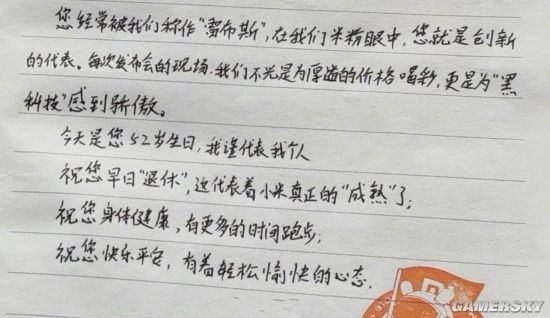 您经常被我们称作“雷布斯”，在我们米粉眼中，您就是创新
的代表。每次发布会的现场，我们不光是为厚道的价格喝彩，更是为“黑
科技”感到骄傲。
今天是您52岁生日，我谨代表我个人
祝您早日“退休”，这代表着小米真正的“成熟”了；
祝您身体健康，有更多的时间跑步；
祝您快乐平安，有着轻松愉快的心态.
GAMERSKY